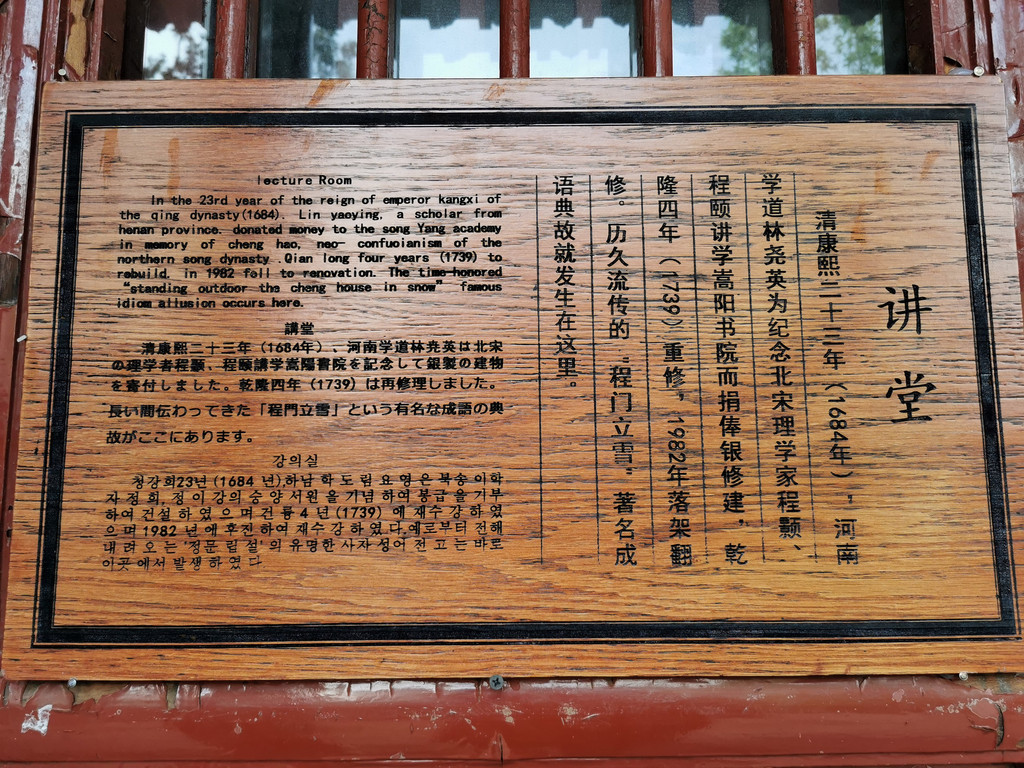 讲堂
清康熙二十三年（1684年），河南
学道林尧英为纪念北宋理学家程颢、
程颐讲学嵩阳书院而捐俸银修建，乾
隆四年（1739）重修，1982年落架翻
修。历久流传的“程门立雪”著名成
语典故就发生在这里。
lecture Room
In the 23rd year of the reign of emperor kangxi of
the qing dynasty(1684). Lin yaoying, a scholar from
henan province. donated money to the song Yang academy
in memory of cheng hao, neo- confuoianism of the
northern song dynasty .Qian long four years (1739) to
rebuild, in 1982 fell to renovation. The time-honored
“standing outdoor the cheng house in snow” famous
idiom allusion occurs here.
講堂
清康熙二十三年（1684年）、河南学道林尭英は北宋
の理学者程顥、程頤講学嵩陽書院を記念して銀製の建物
を寄付しました。乾隆四年（1739）は再修理しました。
長い間伝わってきた「程門立雪」という有名な成語の典
故がここにあります。
강의실
청강희23년(1684 년),하남 학 도 림 요 영 은 북송 이학
자 정 희, 정 이 강의 숭양 서원 을 기념 하여 봉급 을 기부
하여 건설 하였 으 며 건 륭 4 년 (1739) 에 재수 강 하 였
으 며 1982 년 에 후진 하여 재수 강 하였 다.예로부터 전해
내 려 오 는 '정문 립 설' 의 유명한 사자 성어 전 고 는 바로
이곳 에서 발생 하 였 다